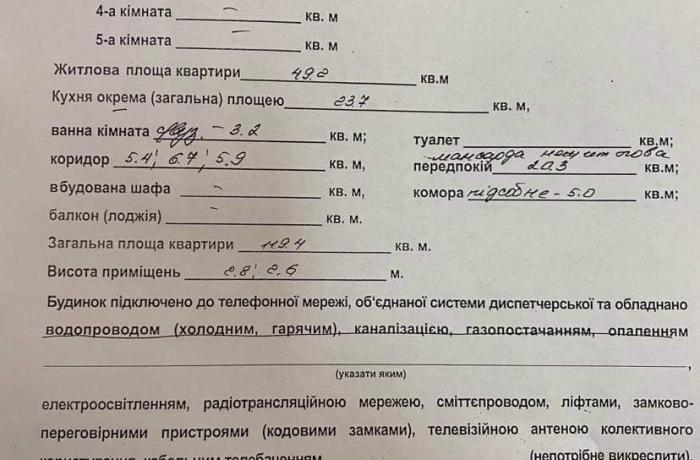 4-а кімната – кв. м
5-а кімната – кв. м
Житлова площа квартири 49.2 кв.м
Кухня окрема (загальна) площею 23.7 кв. м,
ванна кімната – 3.2 кв. м; туалет кв.м;
коридор 5.4; 6.7; 5.9 кв. м, мансарда
передпокій 20.3 кв.м;
вбудована шафа – кв. м, комора підсобне - 5.0 кв.м;
балкон (лоджія) – кв. м.
Загальна площа квартири 119.4 кв. м.
Висота приміщень 2.8; 2.6 м.
Будинок підключено до телефонної мережі, об'єднаної системи диспетчерської та обладнано
водопроводом (холодним, гарячим), каналізацією, газопостачанням, опаленням
,
(указати яким)
електроосвітленням, радіотрансляційною мережею, сміттєпроводом, ліфтами, замково-
переговірними пристроями (кодовими замками), телевізійною антеною колективного
користування, кабельним телебаченням (непотрібне викреслити).